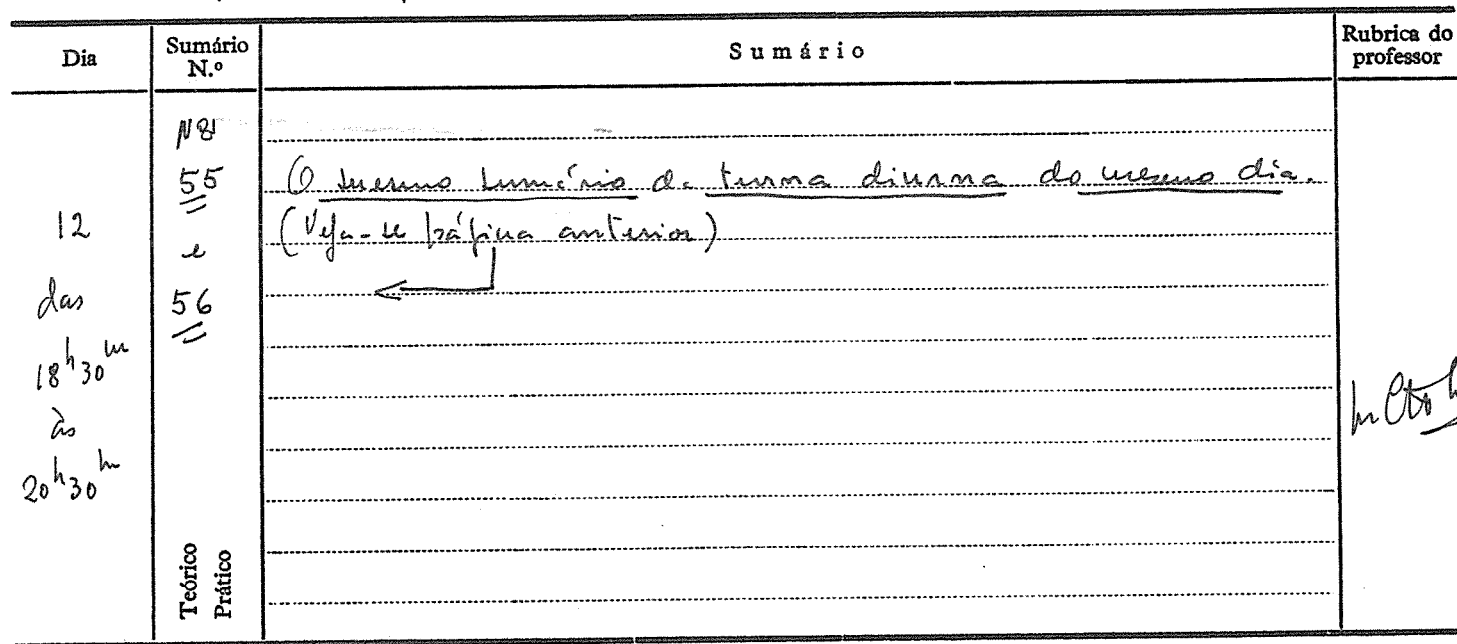 Dia
Sumário N.º
Sumário
Rubrica do professor
12
das
18h30m
às
20h30m
Nº
55
e
56
Teórico
Prático
(O mesmo sumário da turma diurna do mesmo dia.
(Veja-se página anterior)